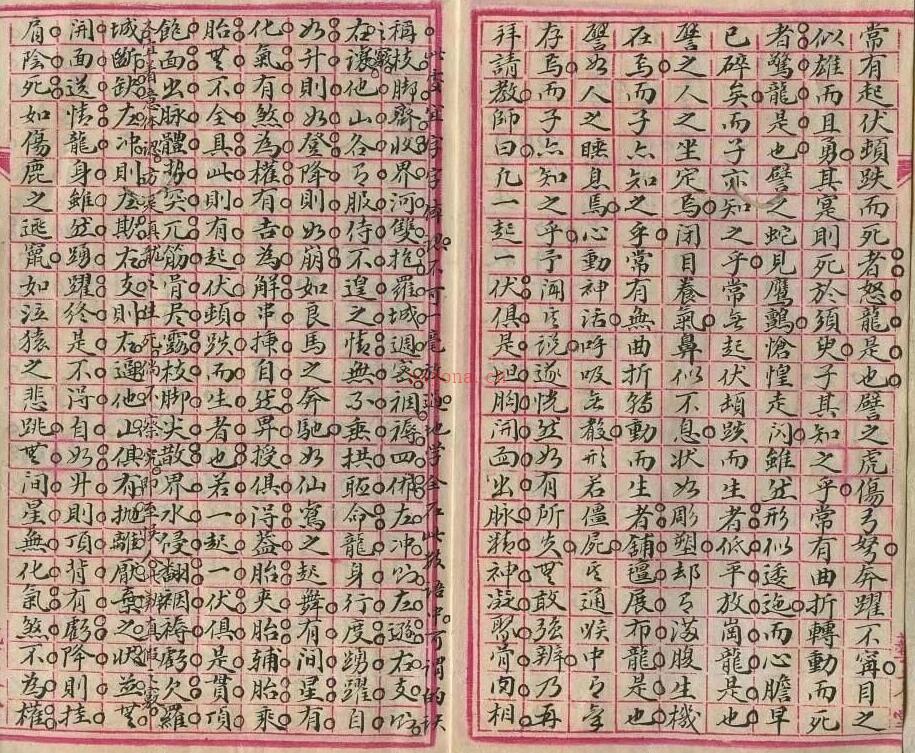 常有起伏頓跌而死者怒龍是也譬之虎傷弓弩奔躍不寗目之
似雄而且勇其寔則死於須臾子其知之乎常有曲折轉動而死
者驚龍是也譬之蛇見鷹鸇愴惶走閃雖然形似逶迤而心膽早
已碎矣而子亦知之乎常無起伏頓跌而生者低平放崗龍是也
譬之人之坐定焉閉目養氣鼻似不息狀如彫塑却有滿腹生機
在焉而子亦知之乎常有無曲折轉動而生者鋪氊展布龍是也
譬如人之睡息焉心動神活呼吸無聲形若僵屍其通喉中有氣
存焉而子亦知之乎予聞其說遂恍然如有所失無敢強辨乃再
拜請教師曰凡一起一伏俱是胆胸開面出脉精神凝聚骨肉相
稱枝脚齊收界河雙抱羅城週密裀褥四備左冲右
在護他山合有服侍不遑之情無不垂拱聽命龍身行度踴躍自
如升則如登降則如崩如良馬之奔馳如仙鸞之起舞有間星有
化氣有煞為權有吉為解串揀自然界授俱得蓋胎夾胎輔胎乘
胎無不全具此則有起伏頓跌而生者也若一起一伏俱是貫頂
飽面出脉體勢突兀筋骨呆露枝脚尖散界水侵翻裀褥虧欠羅
城斷缺左冲則左欺右支則右遯他山俱有抛離厭棄之狀並無
開面送情龍身雖然踴躍終是不得自如升則頂背有虧降則挂
肩陰死如傷鹿之逃竄如泣猿之悲跳無間星無化氣煞不為權